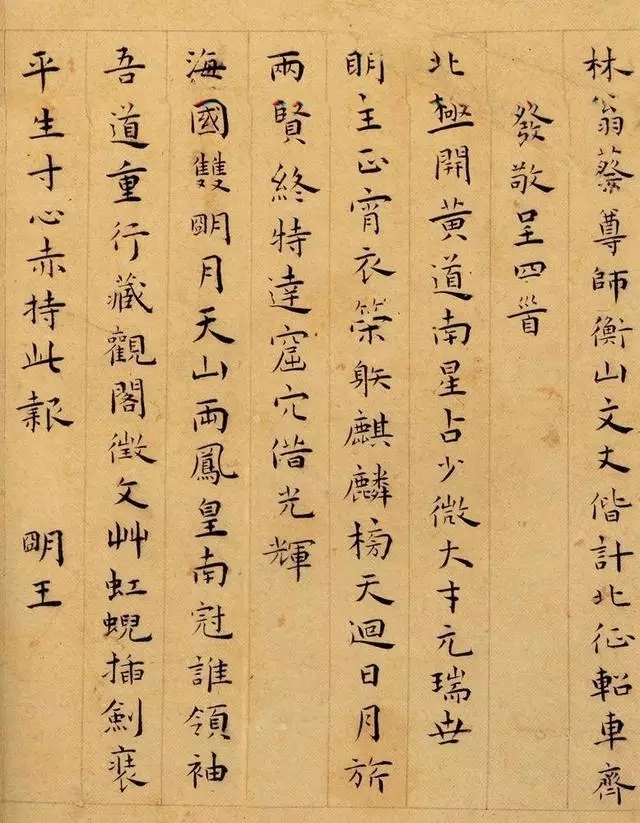 林翁蔡尊師衡山文丈偕計北征軺車齊
發敬呈四首
北極開黃道南星占少微大才元瑞世
明主正宵衣策䠶麒麟榜天迴日月旂
兩賢終特達窟穴偕光輝
海國雙明月天山兩鳳皇南冠誰領袖
吾道重行藏觀閣徵文艸虹蜺插劍裝
平生寸心赤持此報　明王